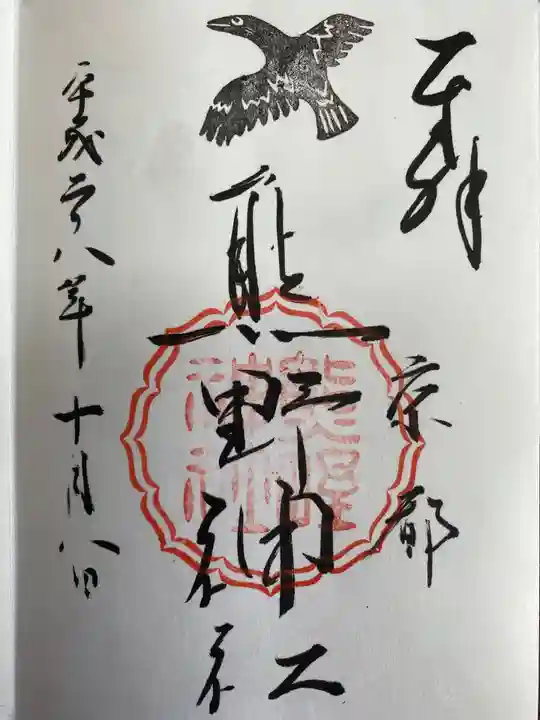 奉拝
京都
熊野神社
熊野神社
平成二十八年十月八日